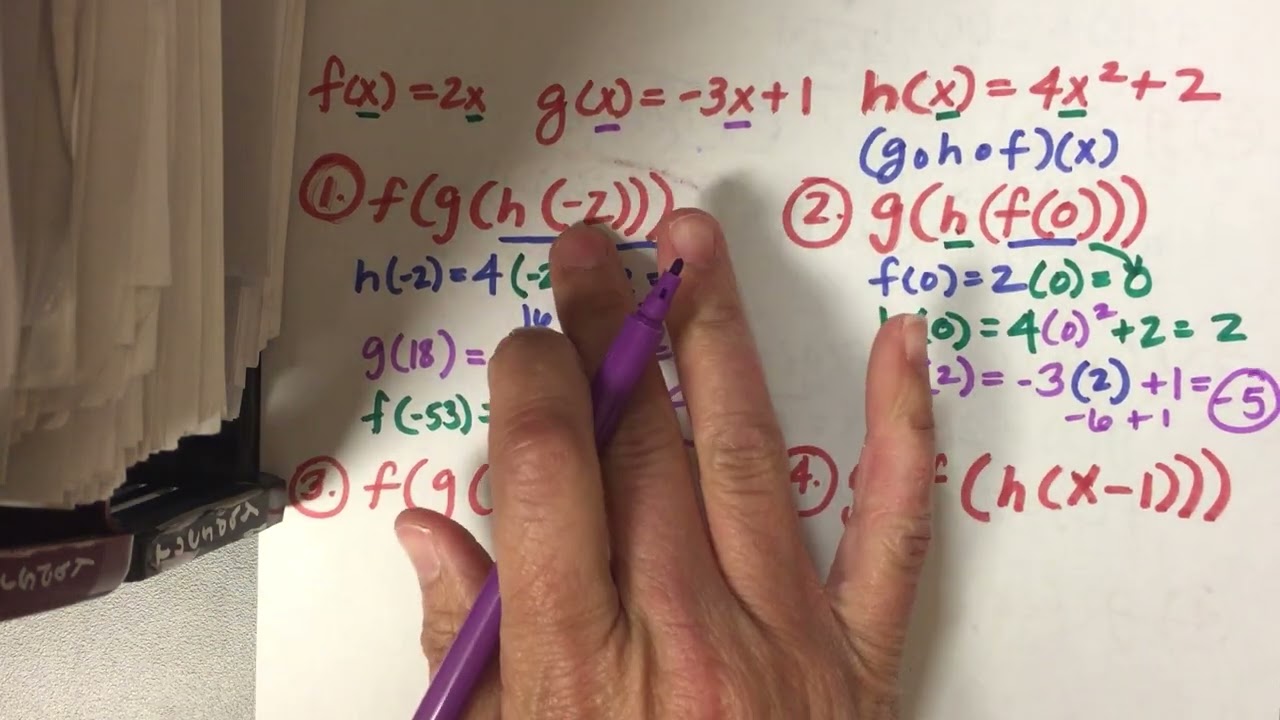 f(x) = 2x g(x) = -3x+1 h(x) = 4x²+2
(g∘h∘f)(x)
1. f(g(h(-2)))
h(-2) = 4(-2
16
g(18) =
f(-53) =
2. g(h(f(0)))
f(0) = 2(0) = 0
(0) = 4(0)²+2 = 2
(2) = -3(2) +1 = -5
-6 + 1
3. f(g(
4. (h(x-1)))